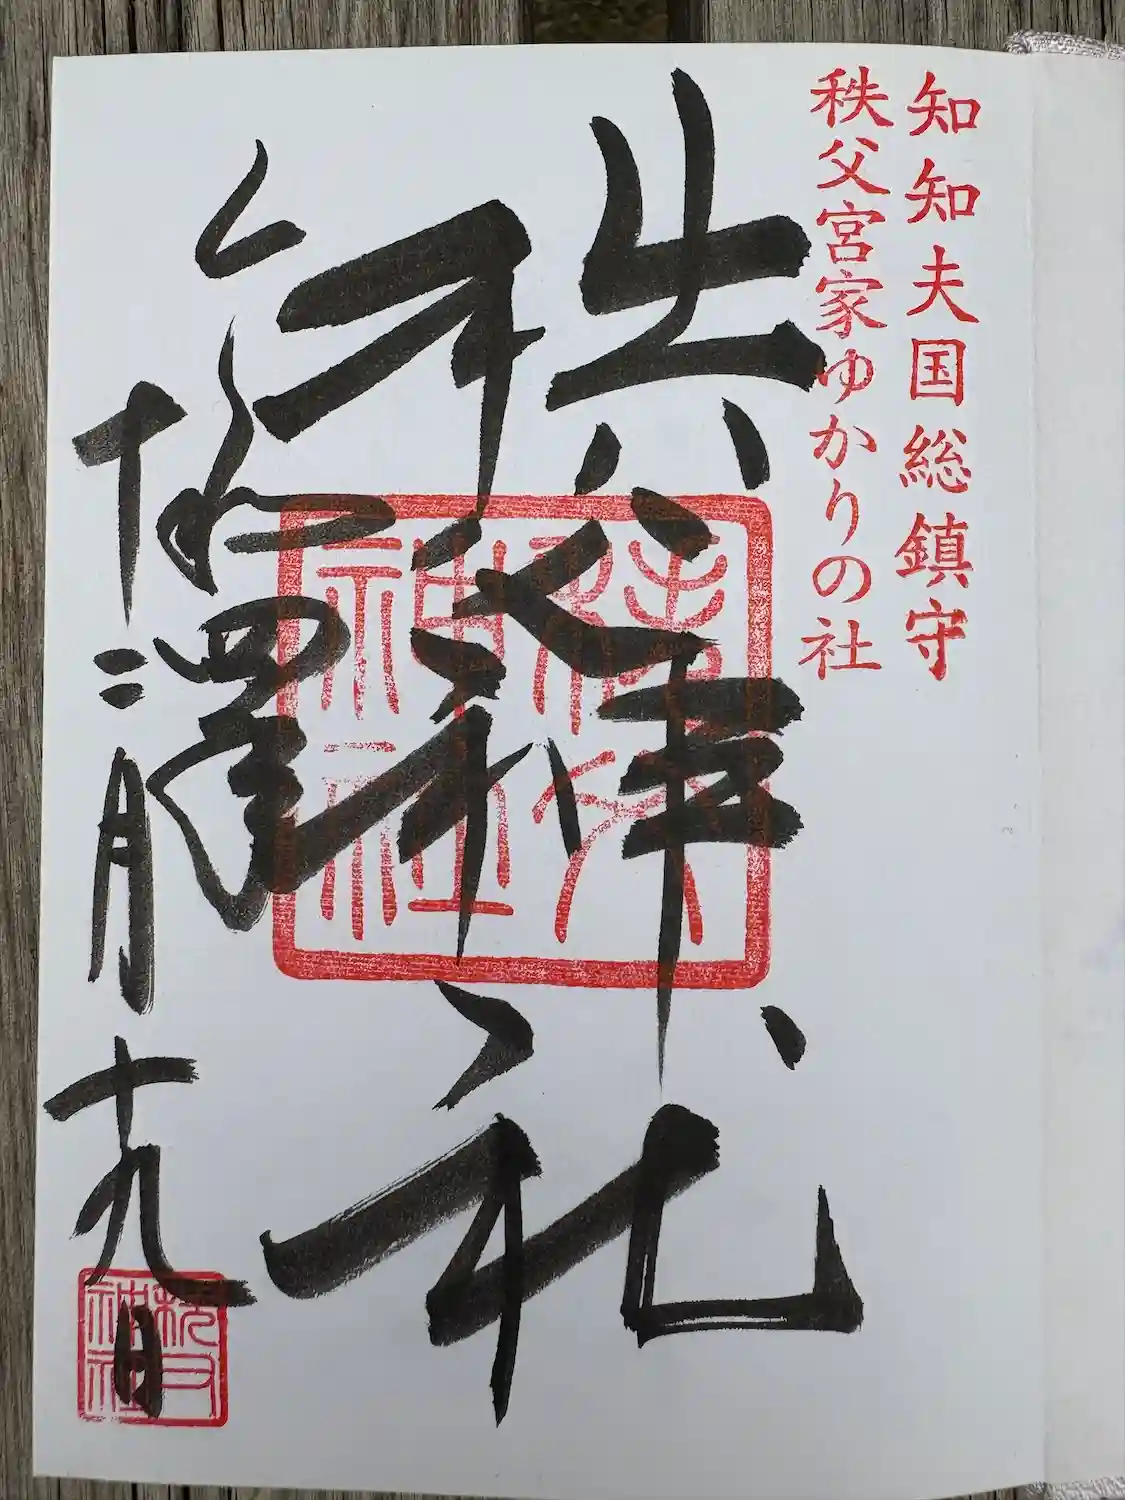 知知夫国総鎮守
秩父宮家ゆかりの社
秩父神社
十二月十九日
秩父神社
秩父神社